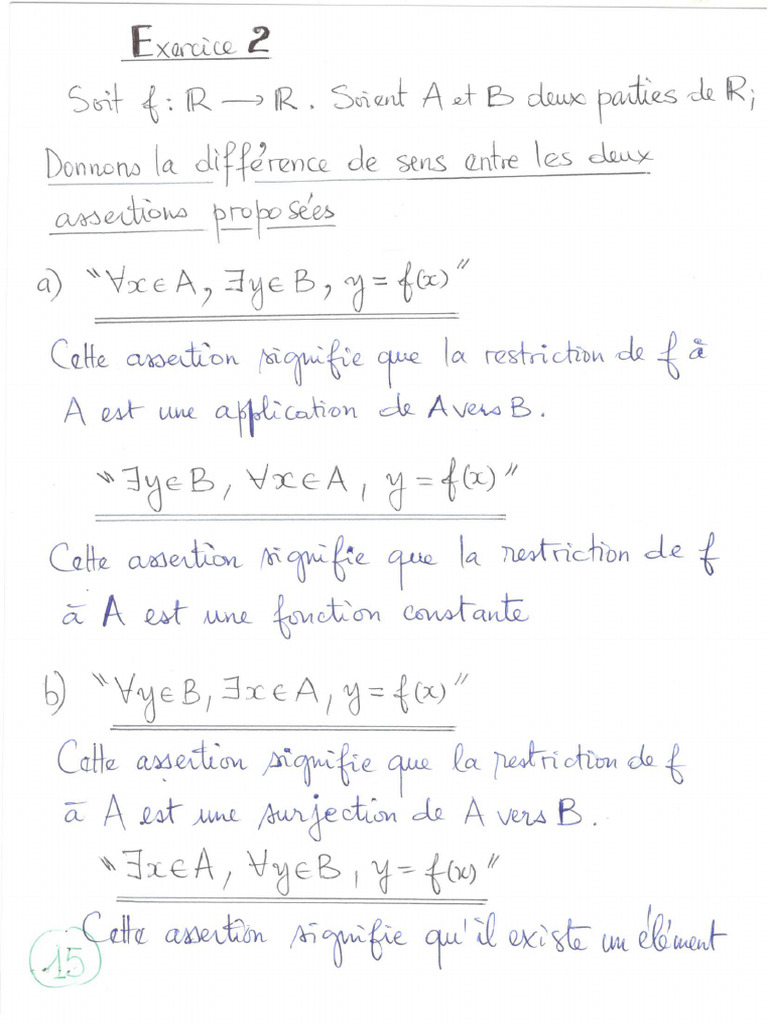 Exercice 2
Soit f : ℝ → ℝ. Soient A et B deux parties de ℝ;
Donnons la différence de sens entre les deux
assertions proposées
a) "∀x∈A, ∃y∈B, y = f(x)"
Cette assertion signifie que la restriction de f à
A est une application de A vers B.
"∃y∈B, ∀x∈A, y = f(x)"
Cette assertion signifie que la restriction de f
à A est une fonction constante
b) "∀y∈B, ∃x∈A, y = f(x)"
Cette assertion signifie que la restriction de f
à A est une surjection de A vers B.
"∃x∈A, ∀y∈B, y = f(x)"
Cette assertion signifie qu'il existe un élément
15